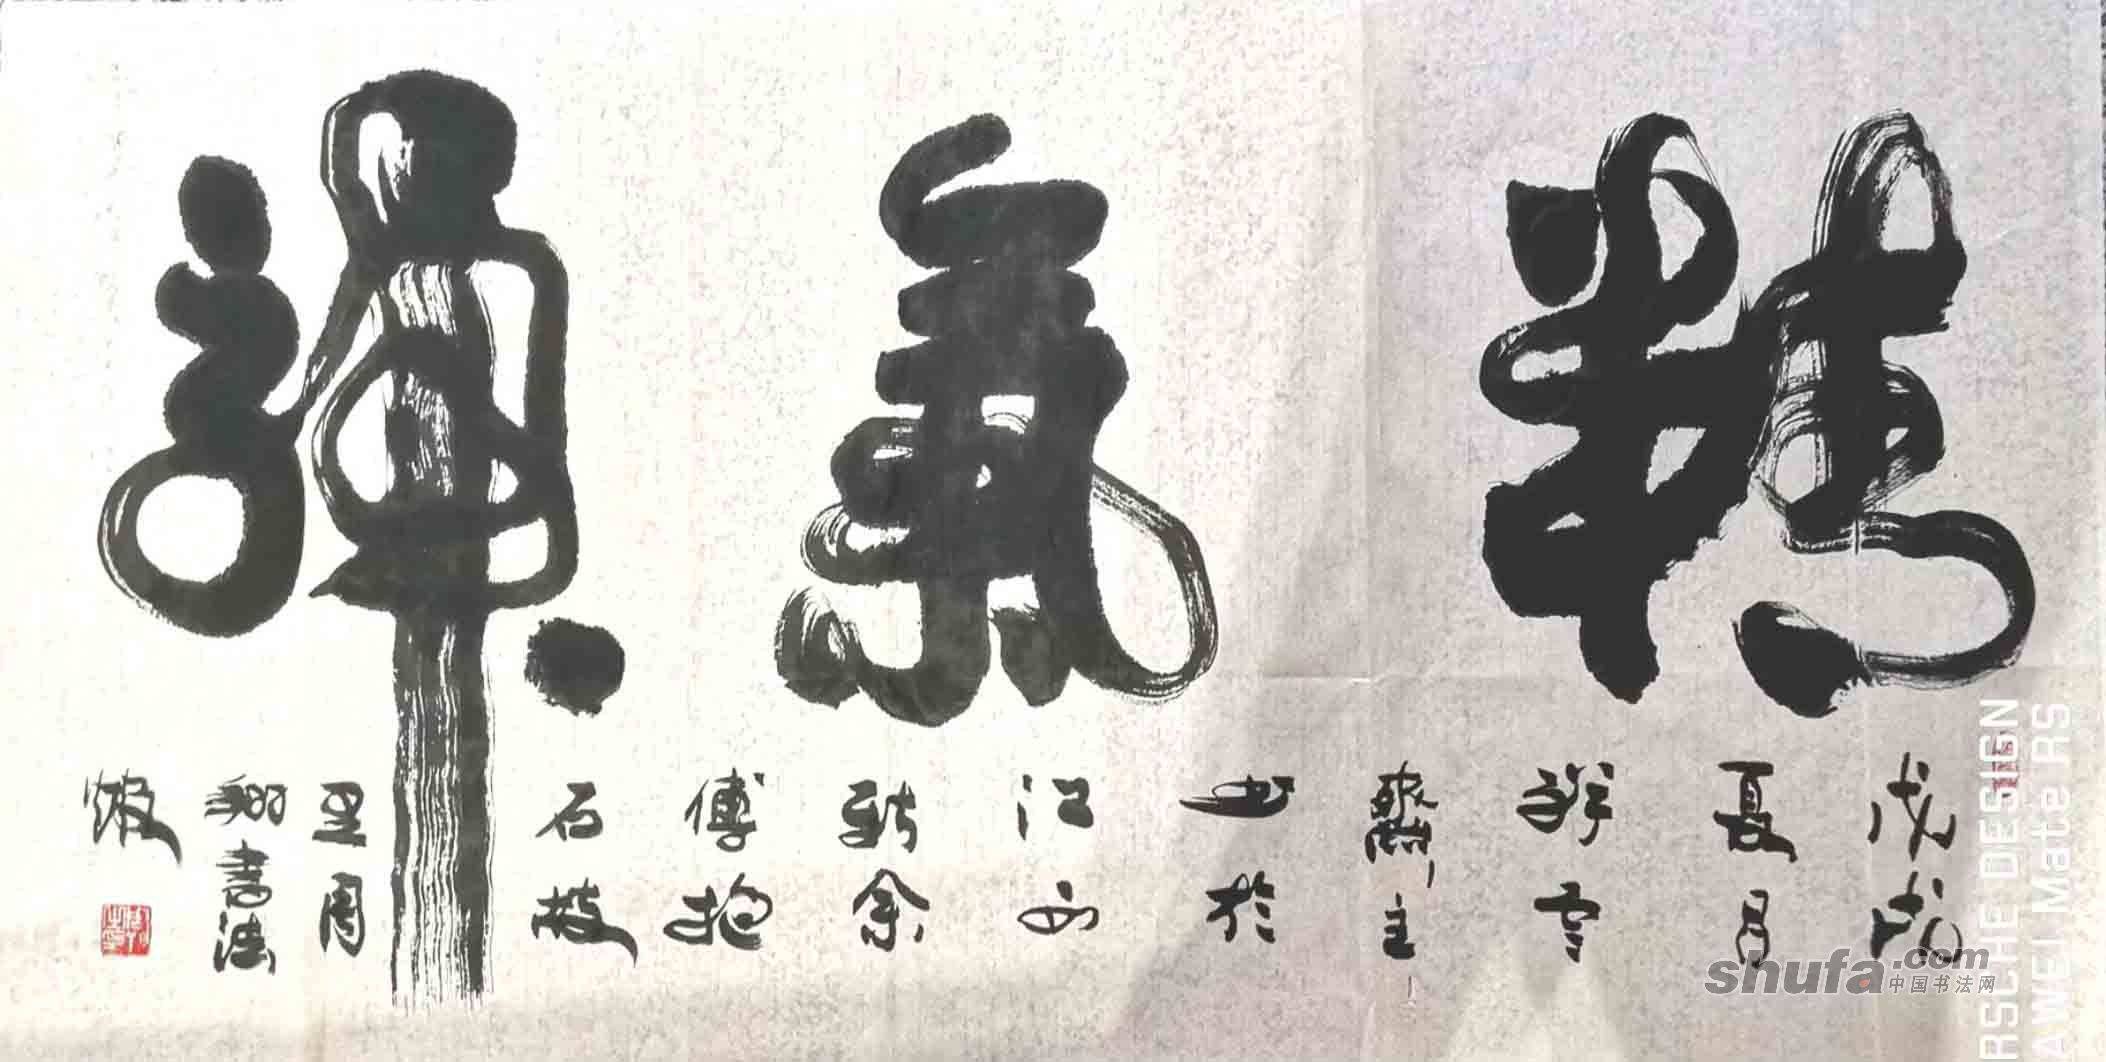 精气神
戊戌
夏月
祥云
斋主
书于
江西
新余
傅抱
石故
里周
翔书法
PORSCHE DESIGN
HUAWEI Mate RS
shufa.com
中国书法网